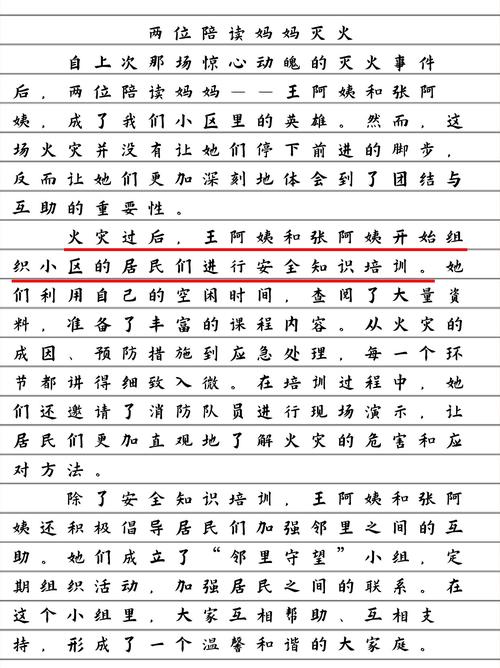 两位陪读妈妈灭火
自上次那场惊心动魄的灭火事件
后，两位陪读妈妈——王阿姨和张阿
姨，成了我们小区里的英雄。然而，这
场火灾并没有让她们停下前进的脚步，
反而让她们更加深刻地体会到了团结与
互助的重要性。
火灾过后，王阿姨和张阿姨开始组
织小区的居民们进行安全知识培训。她
们利用自己的空闲时间，查阅了大量资
料，准备了丰富的课程内容。从火灾的
成因、预防措施到应急处理，每一个环
节都讲得细致入微。在培训过程中，她
们还邀请了消防队员进行现场演示，让
居民们更加直观地了解火灾的危害和应
对方法。
除了安全知识培训，王阿姨和张阿
姨还积极倡导居民们加强邻里之间的互
助。她们成立了“邻里守望”小组，定
期组织活动，加强居民之间的联系。在
这个小组里，大家互相帮助、互相支
持，形成了一个温馨和谐的大家庭。